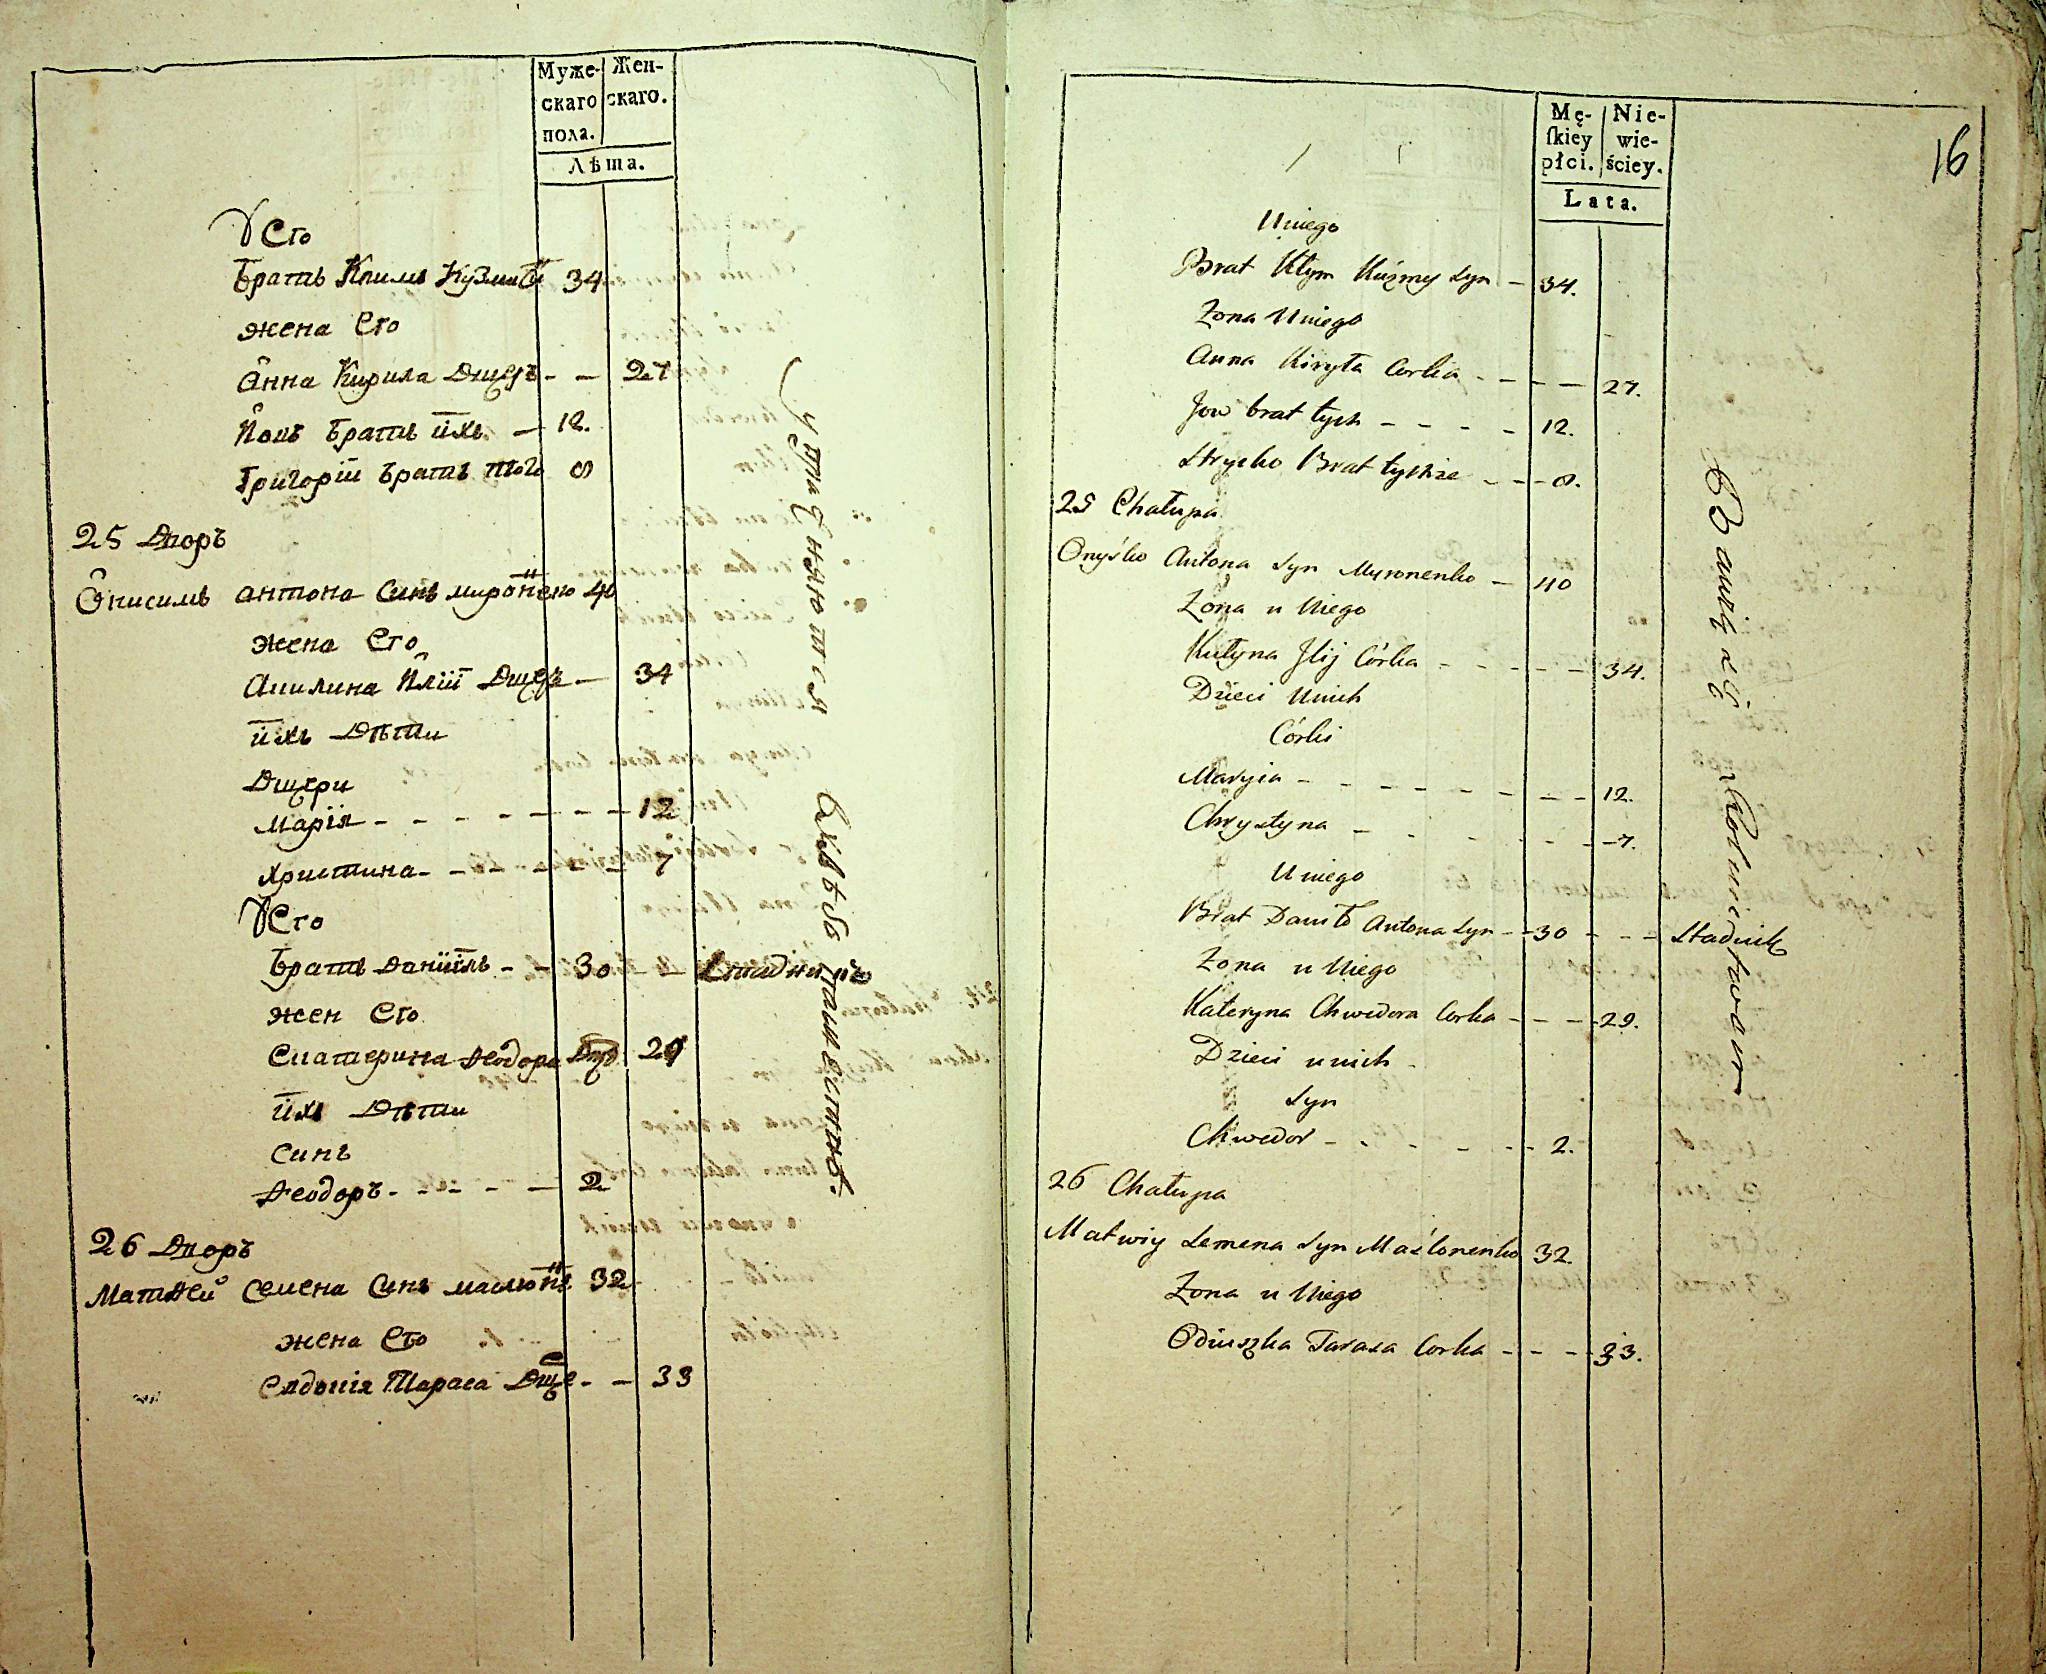 Муже-
скаго
пола.
Жен-
скаго.
Лѣта.
У Его
Братъ Климъ Кузмы 34
жена Его
Анна Кирила Дщерь - - 27
Йовъ Братъ ихъ - 12.
Григорій Братъ того 8
25 Дворъ
Онисимъ Антона Синъ Мироненко 40
жена Его
Акилина Иліи Дщерь - 34
ихъ Дѣти
Дщери
Марія - - - - - - - 12
Христина - - - - - 7
У Его
Братъ Даніилъ - - 30 Стадникъ
жен Его
Екатерина Ѳеодора Дщ 29
ихъ Дѣти
Синъ
Ѳеодоръ - - - - - 2
26 Дворъ
Матѳей Семена Синъ 32
жена Его
Евдокія Тараса Дще - - 33
упражняются
Хлѣбопашествомъ.
16
Mę-
ſkiey
płci.
Nie-
wie-
ściey.
Lata.
Uniego
Brat Kłym Kuźmy Syn - 34.
Zona Uniego
Anna Kiryła Corka - - - - 27.
Jow brat tych - - - - 12.
Hryćko Brat tychże - - - 8.
25 Chałupa
Onyśko Antona Syn Myronenko - 40
Zona u Niego
Kiłyna Jlij Córka - - - - - 34.
Dzieci Unich
Córki
Maryia - - - - - - - - 12.
Chrystyna - - - - - - 7.
Uniego
Brat Daniło Antona Syn - - 30 - - - Stadnik
Zona u Niego
Kateryna Chwedora Corka - - - - 29.
Dzieci unich
Syn
Chwedor - - - - - - 2.
26 Chałupa
Matwiy Semena Syn Maślonenko 32.
Zona u Niego
Odiuszka Tarasa Corka - - - - 33.
Bawią się Rolnictwem